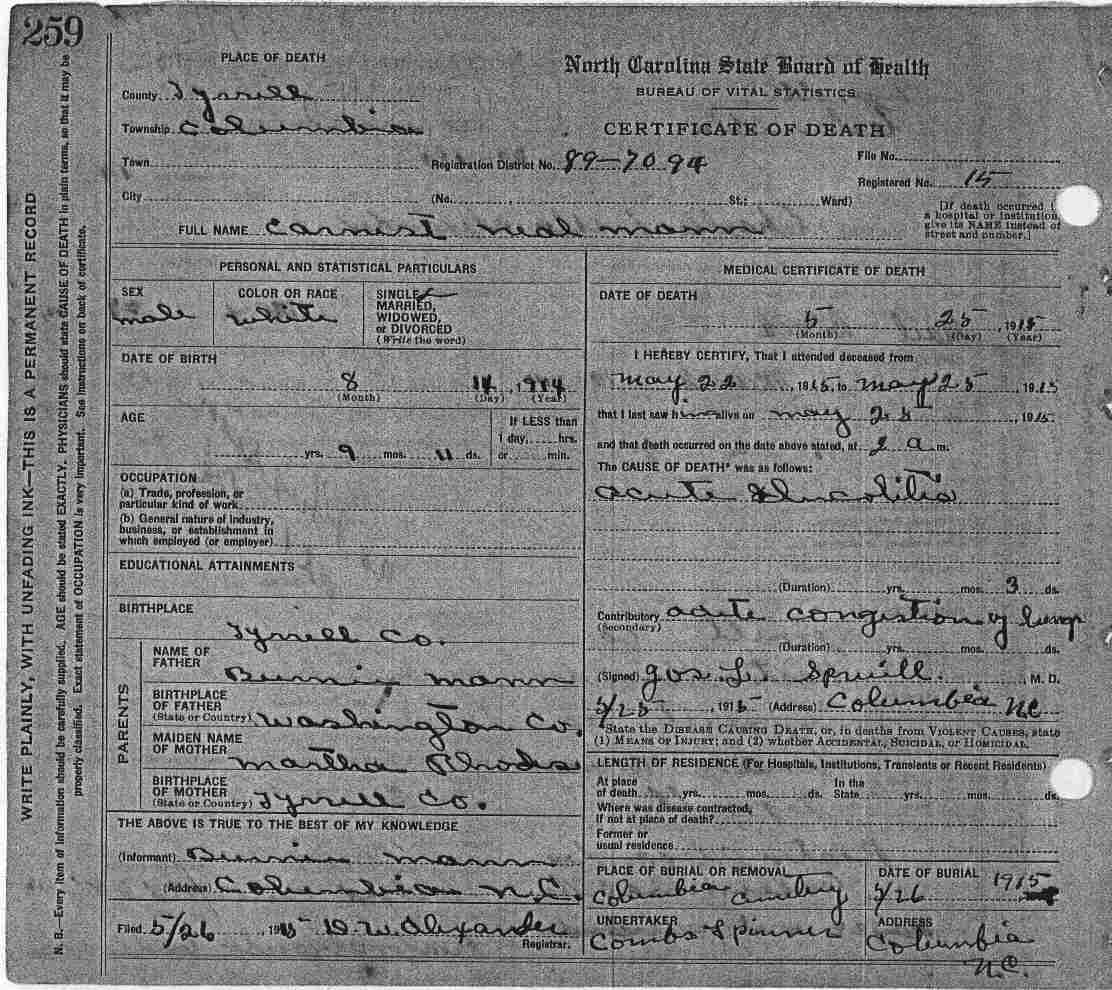 259
WRITE PLAINLY, WITH UNFADING INK—THIS IS A PERMANENT RECORD
N. B.—Every item of information should be carefully supplied. AGE should be stated EXACTLY. PHYSICIANS should state CAUSE OF DEATH in plain terms, so that it may be
properly classified. Exact statement of OCCUPATION is very important. See instructions on back of certificate.
PLACE OF DEATH
County Tyrrell
Township Columbia
Town
City
North Carolina State Board of Health
BUREAU OF VITAL STATISTICS
CERTIFICATE OF DEATH
Registration District No. 89-7094
File No.
Registered No. 15
(No. , St.; Ward)
[If death occurred in
a hospital or institution,
give its NAME instead of
street and number.]
FULL NAME Earnest Neal Mann
PERSONAL AND STATISTICAL PARTICULARS
SEX
male
COLOR OR RACE
white
SINGLE,
MARRIED,
WIDOWED,
or DIVORCED
(Write the word)
DATE OF BIRTH
8 14, 1914
(Month) (Day) (Year)
AGE
yrs. 9 mos. 11 ds.
If LESS than
1 day, hrs.
or min.
OCCUPATION
(a) Trade, profession, or
particular kind of work
(b) General nature of industry,
business, or establishment in
which employed (or employer)
EDUCATIONAL ATTAINMENTS
BIRTHPLACE
Tyrrell Co.
PARENTS
NAME OF
FATHER
Mann
BIRTHPLACE
OF FATHER
(State or Country) Washington Co.
MAIDEN NAME
OF MOTHER
Martha Rhodes
BIRTHPLACE
OF MOTHER
(State or Country) Tyrrell Co.
THE ABOVE IS TRUE TO THE BEST OF MY KNOWLEDGE
(Informant) Mann
(Address) Columbia N.C.
Filed 5/26 1915 D. W. Alexander
Registrar.
MEDICAL CERTIFICATE OF DEATH
DATE OF DEATH
5 25, 1915
(Month) (Day) (Year)
I HEREBY CERTIFY, That I attended deceased from
May 22, 1915 to May 25 1915
that I last saw him alive on May 25 1915
and that death occurred on the date above stated, at 2 a m.
The CAUSE OF DEATH* was as follows:
acute
(Duration) yrs. mos. 3 ds.
Contributory acute congestion of lungs
(Secondary)
(Duration) yrs. mos. ds.
(Signed) Jos. L. Spruill, M. D.
5/25, 1915 (Address) Columbia NC
*State the DISEASE CAUSING DEATH, or, in deaths from VIOLENT CAUSES, state
(1) MEANS OF INJURY; and (2) whether ACCIDENTAL, SUICIDAL, or HOMICIDAL.
LENGTH OF RESIDENCE (For Hospitals, Institutions, Transients or Recent Residents)
At place
of death yrs. mos. ds.
In the
State yrs. mos. ds.
Where was disease contracted,
if not at place of death?
Former or
usual residence
PLACE OF BURIAL OR REMOVAL
Columbia Cemetery
DATE OF BURIAL
5/26 1915
UNDERTAKER
Combs Spinner
ADDRESS
Columbia
N.C.